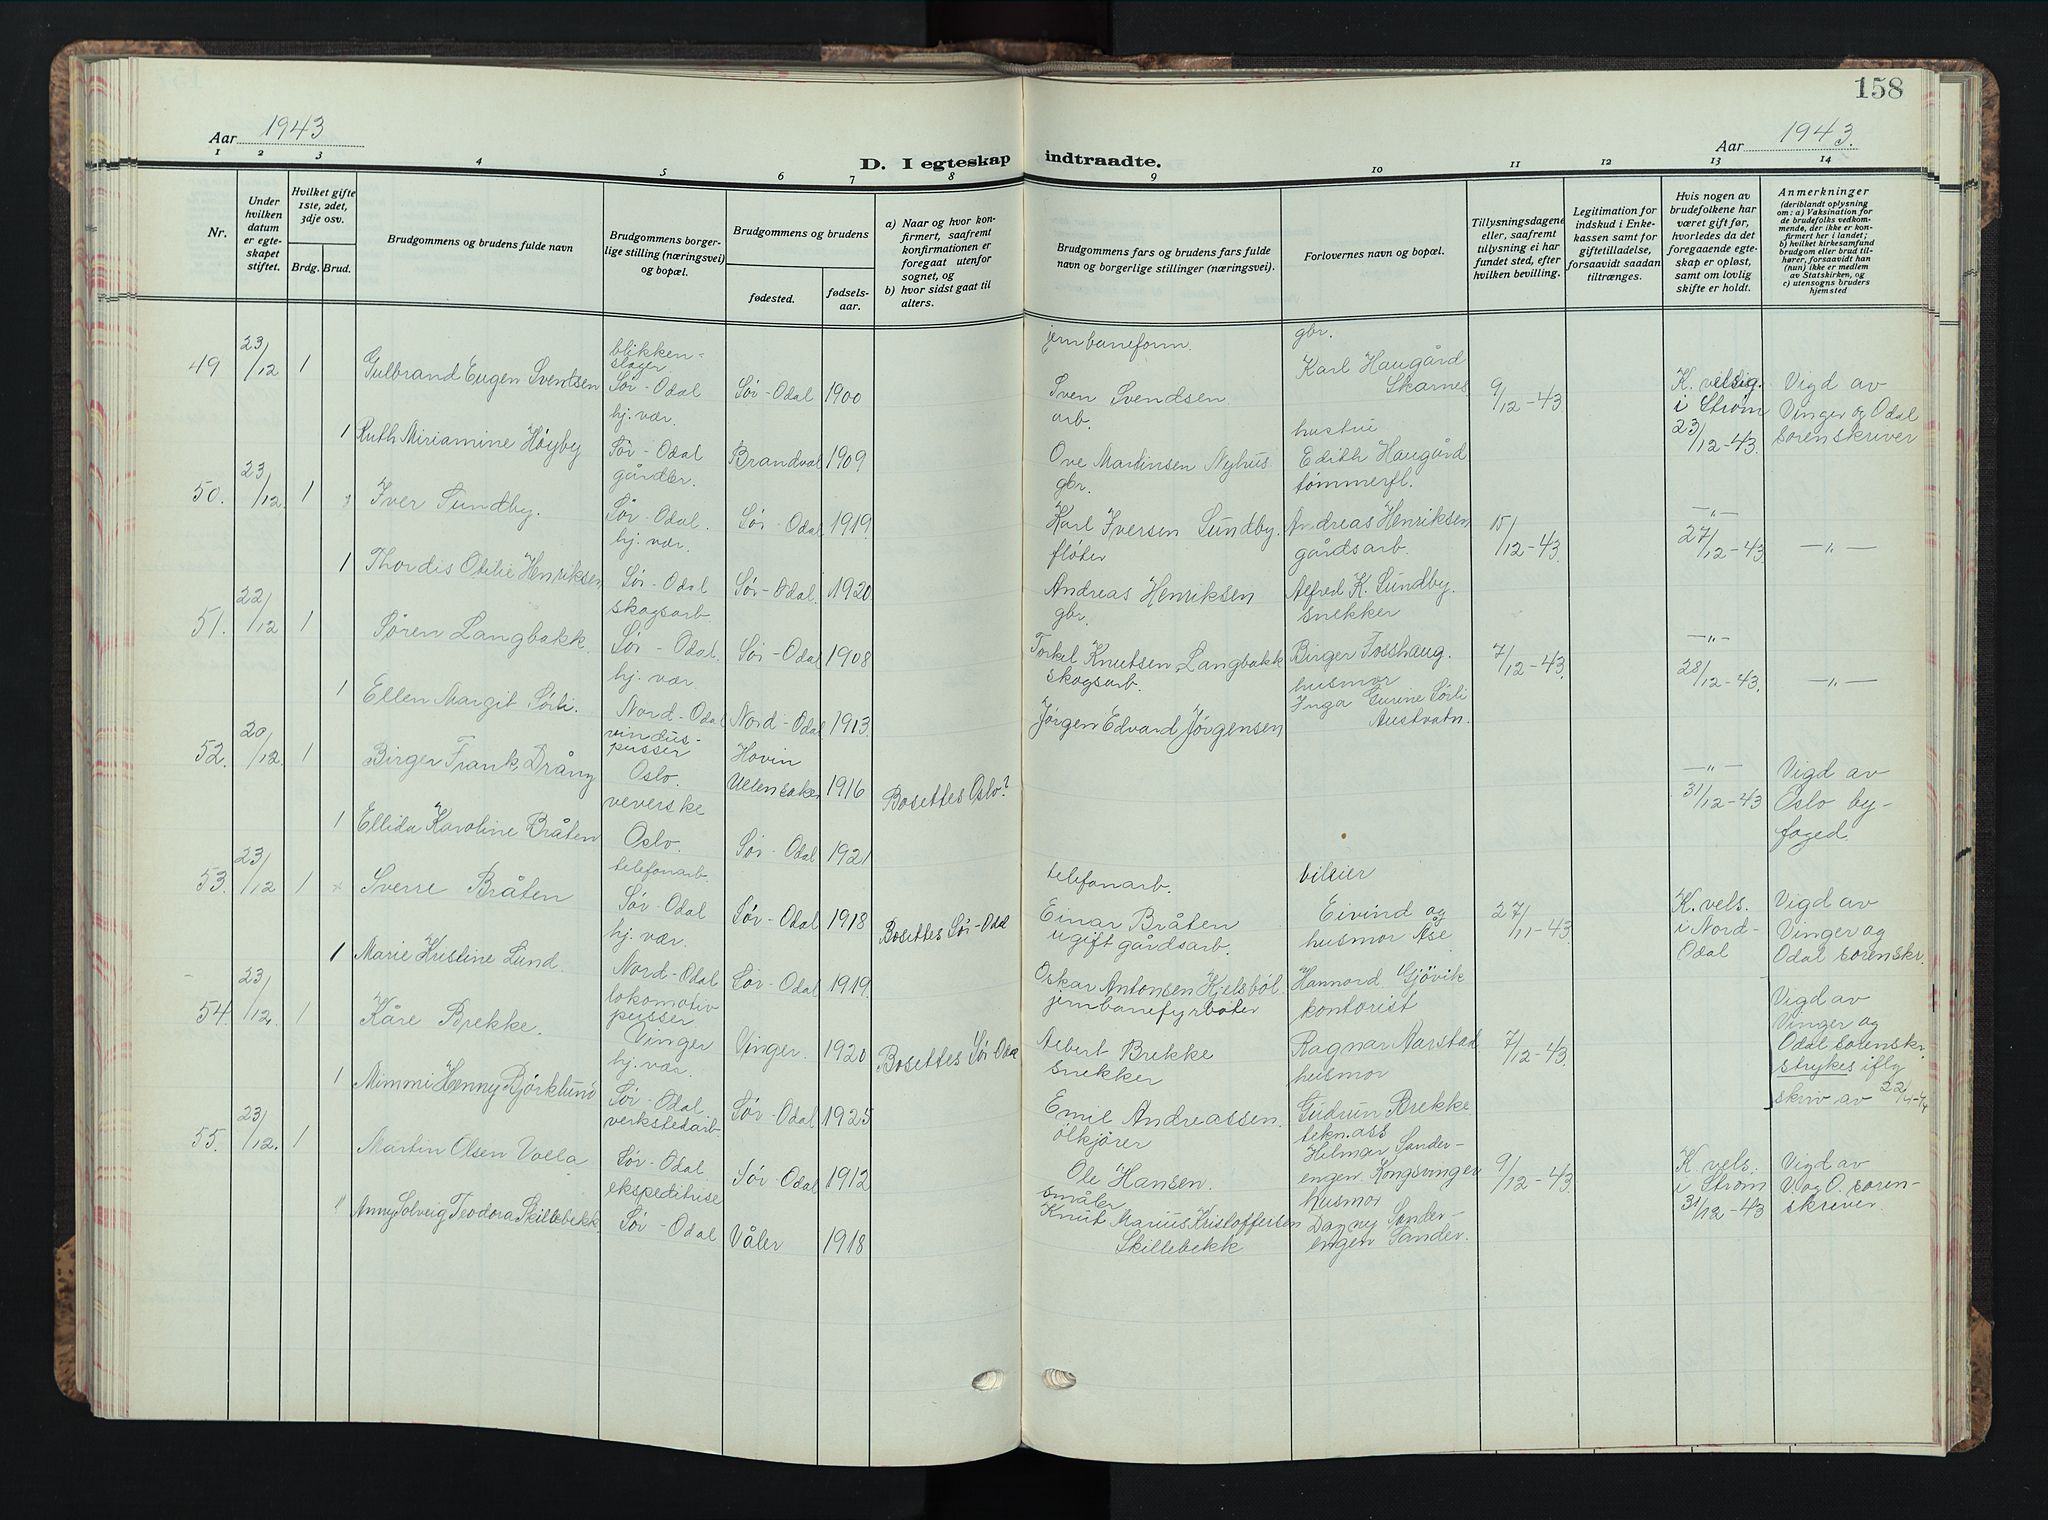 158
Aar 1943
Aar 1943.
D. I egteskap indtraadte.
1 2 3 4 5 6 7 8 9 10 11 12 13 14
Nr.
Under hvilken datum er egteskapet stiftet.
Hvilket gifte 1ste, 2det, 3dje osv.
Brdg. Brud.
Brudgommens og brudens fulde navn
Brudgommens borgerlige stilling (næringsvei) og bopæl.
Brudgommens og brudens
fødested.
fødselsaar.
a) Naar og hvor konfirmert, saafremt konfirmationen er foregaat utenfor sognet, og
b) hvor sidst gaat til alters.
Brudgommens fars og brudens fars fulde navn og borgerlige stillinger (næringsvei).
Forlovernes navn og bopæl.
Tillysningsdagene eller, saafremt tillysning ei har fundet sted, efter hvilken bevilling.
Legitimation for indskud i Enkekassen samt for giftetilladelse, forsaavidt saadan tiltrænges.
Hvis nogen av brudefolkene har været gift før, hvorledes da det foregaaende egteskap er opløst, samt om lovlig skifte er holdt.
Anmerkninger (deriblandt oplysning om: a) Vaksination for de brudefolks vedkommende, der ikke er konfirmert her i landet; b) hvilket kirkesamfund brudgom eller brud tilhører, forsaavidt han (hun) ikke er medlem av Statskirken, og c) utensogns bruders hjemsted
49 23/12 1 Gulbrand Eugen Svendsen blikkenslager. Sør-Odal Sør-Odal 1900 jernbaneform. Sven Svendsen gbr. Karl Haugård Skarnes 9/12-43 K. velsig. i Strøm 23/12-43. Vigd av Vinger og Odal sorenskriver
1 Ruth Miriamine Høyby hj. vær. Sør-Odal Brandval 1909 arb. Ove Martinsen Nyhus hustru Edith Haugård
50. 23/12. 1 Iver Sundby. gårdbr. Sør-Odal. Sør-Odal 1919. gbr. Karl Iversen Sundby. tømmerfl. Andreas Henriksen 15/12-43. —"— 27/12-43. —"—
1 Thordis Otilie Henriksen hj. vær. Sør-Odal Sør-Odal. 1920 fløter Andreas Henriksen gårdsarb. Alfred K. Sundby.
51. 22/12 1 Søren Langbakk. skogsarb. Sør-Odal. Sør-Odal 1908 gbr. Torkel Knutsen Langbakk snekker Birger Fosshaug. 7/12-43. —"— 28/12-43. —"—
1 Ellen Margit Sørli. hj. vær. Nord-Odal Nord-Odal 1913. skogsarb. Jørgen Edvard Jørgensen husmor Inga Gurine Sørli Austvatn.
52. 20/12. 1 Birger Frank Drång vinduspusser Oslo. Hovin Ullensaker 1916 Bosettes Oslo? —"— 31/12-43 Vigd av Oslo byfoged.
1 Ellida Karoline Bråten veverske Oslo. Sør-Odal 1921
53. 23/12 1 Sverre Bråten telefonarb. Sør-Odal Sør-Odal 1918 Bosettes Sør-Odal telefonarb. Einar Bråten Eivind og 27/11-43. K. vels. i Nord-Odal Vigd av Vinger og Odal sorenskr.
1 Marie Kristine Lund. hj. vær. Nord-Odal Sør-Odal 1919. ugift gårdsarb. Oskar Antonsen Kjelsböl husmor Åse Gjövik
54. 23/12. 1 Kåre Brekke. lokomotivpusser Vinger Vinger. 1920 Bosettes Sør-Odal jernbanefyrbøter Albert Brekke kontorist Ragnar Aarstad 7/12-43. Vigd av Vinger og Odal sorenskr. strykes iflg skriv av 22/4-44
1 Mimmi Henny Björklund hj. vær. Sør-Odal. Sør-Odal 1925 snekker Emil Andreassen. husmor Gudrun Brekke
55. 23/12. 1 Martin Olsen Volla verkstedarb. Sør-Odal Sør-Odal 1912 ölkjører Ole Hansen. tekn. ass Hilmar Sanderengen Kongsvinger 9/12-43. K. vels. i Strøm 31/12-43 Vigd av V. og O. sorenskriver.
1 Anny Solveig Teodora Skillebekk. ekspeditrise Sør-Odal Våler 1918 småbr. Knut Marius Kristoffersen Skillebekk husmor Dagny Sanderengen Sander.